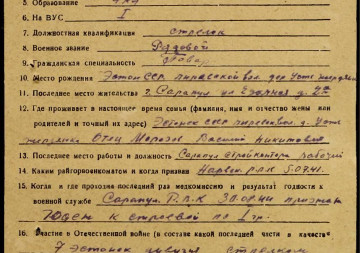 5. Образование
6. На ВУС I
7. Должностная квалификация стрелок
8. Военное звание Рядовой
9. Гражданская специальность Повар
10. Место рождения Эстон ССР дер Усть
11. Последнее место жительства г. Сарапул ул д.
12. Где проживает в настоящее время семья (фамилия, имя и отчество жены или
родителей и точный их адрес) Эстонск ССР д. Усть
Отец Морозов Василий Никитович
13. Последнее место работы и должность Сарапул рабочий
14. Каким райгорвоенкоматом и когда призван Нарвск РВК 5.07.41.
15. Когда и где проходил последний раз медкомиссию и результат годности к
военной службе Сарапул. Р.В.К признан
Годен к строевой по I гр.
16. Участие в Отечественной войне (в составе какой последней части и в качестве
7 Эстонск дивизия стрелком